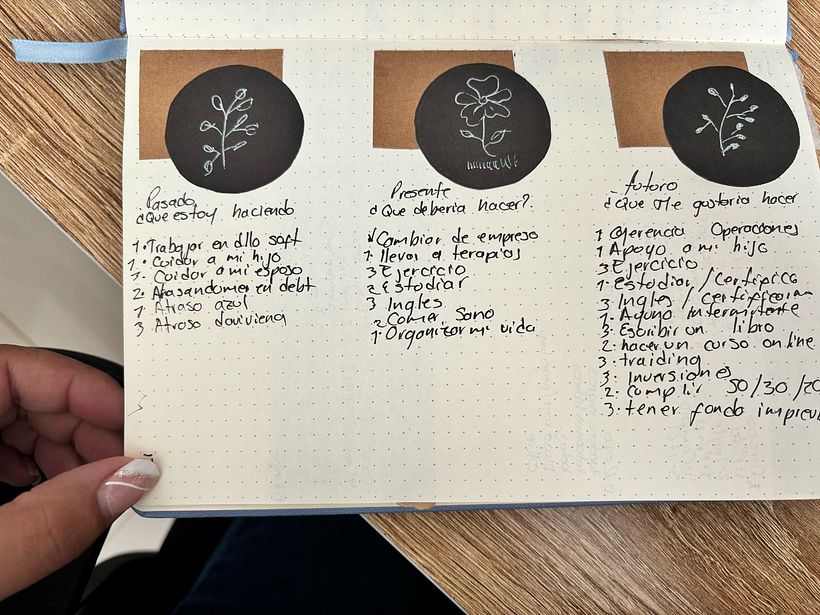 Pasado
¿Que estoy haciendo
1. Trabajar en dllo soft
1. Cuidar a mi hijo
3. Cuidar a mi esposo
2. Atrasandome en debt
1 Atraso azul
3 Atraso davivienda
Presente
¿Que deberia hacer?
1 Cambiar de empresa
1. llevar a terapias
3 Ejercicio
2 Estudiar
3 Ingles
2 Comer sano
1. Organizar mi vida
futuro
¿Que Me gustaria hacer
1 Gerencia Operaciones
1 Apoyo a mi hijo
3 Ejercicio
1. Estudiar / Certifico
3 Ingles /
1. Ayuno intermitente
3. Escribir un libro
2. hacer un curso online
3. traiding
3. Inversiones
2. Cumplir 50/30/20
3. tener fondo